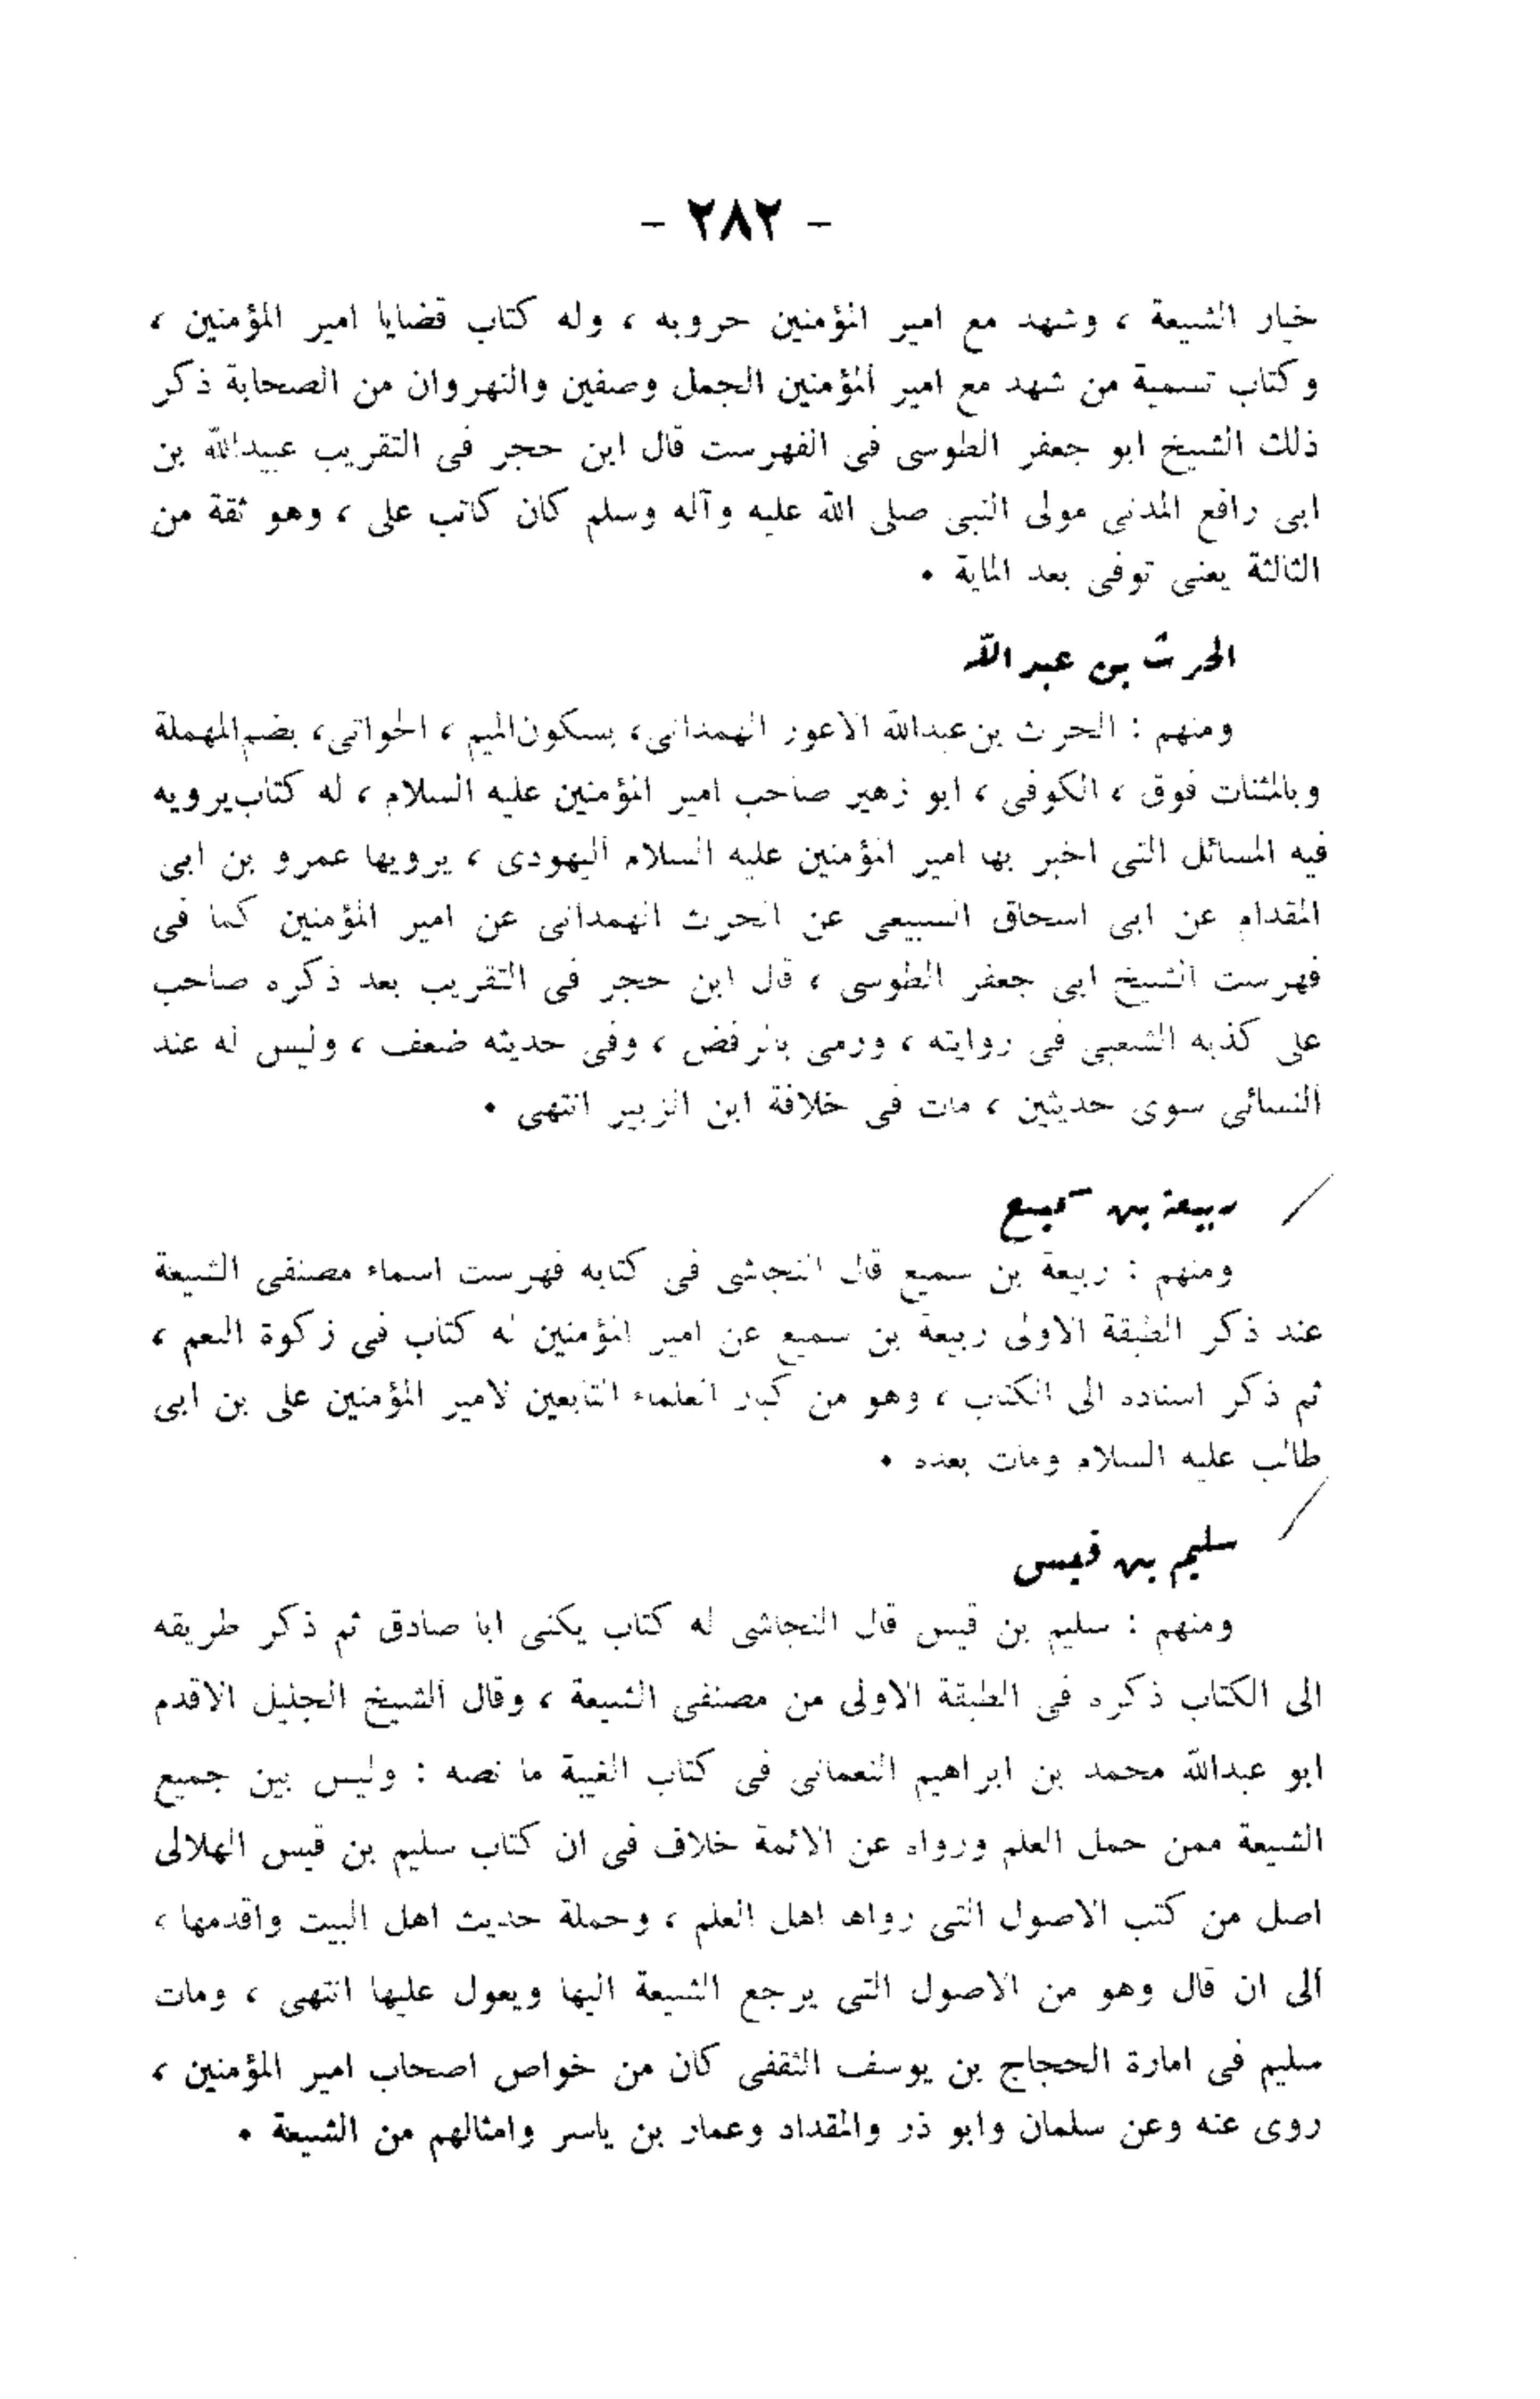 - ٢٨٢ -
خيار الشيعة ، وشهد مع امير المؤمنين حروبه ، وله كتاب قضايا امير المؤمنين ،
وكتاب تسمية من شهد مع امير المؤمنين الجمل وصفين والنهروان من الصحابة ذكر
ذلك الشيخ ابو جعفر الطوسى فى الفهرست قال ابن حجر فى التقريب عبيدالله بن
ابى رافع المدنى مولى النبى صلى الله عليه وآله وسلم كان كاتب على ، وهو ثقة من
الثالثة يعنى توفى بعد الماية •
الحرث بن عبد الله
ومنهم : الحرث بن عبدالله الاعور الهمدانى، بسكون الميم ، الحواتى، بضم المهملة
وبالمثنات فوق ، الكوفى ، ابو زهير صاحب امير المؤمنين عليه السلام ، له كتاب يرويه
فيه المسائل التى اخبر بها امير المؤمنين عليه السلام اليهودى ، يرويها عمرو بن ابى
المقدام عن ابى اسحاق السبيعى عن الحرث الهمدانى عن امير المؤمنين كما فى
فهرست الشيخ ابى جعفر الطوسى ، قال ابن حجر فى التقريب بعد ذكره صاحب
على كذبه الشعبى فى روايته ، ورمى بالرفض ، وفى حديثه ضعف ، وليس له عند
النسائى سوى حديثين ، مات فى خلافة ابن الزبير انتهى •
ربيعة بن سميع
ومنهم : ربيعة بن سميع قال النجاشى فى كتابه فهرست اسماء مصنفى الشيعة
عند ذكر الطبقة الاولى ربيعة بن سميع عن امير المؤمنين له كتاب فى زكوة النعم ،
ثم ذكر اسناده الى الكتاب ، وهو من كبار العلماء التابعين لامير المؤمنين على بن ابى
طالب عليه السلام ومات بعده •
سليم بن قيس
ومنهم : سليم بن قيس قال النجاشى له كتاب يكنى ابا صادق ثم ذكر طريقه
الى الكتاب ذكره فى الطبقة الاولى من مصنفى الشيعة ، وقال الشيخ الجليل الاقدم
ابو عبدالله محمد بن ابراهيم النعمانى فى كتاب الغيبة ما نصه : وليس بين جميع
الشيعة ممن حمل العلم ورواه عن الائمة خلاف فى ان كتاب سليم بن قيس الهلالى
اصل من كتب الاصول التى رواها اهل العلم ، وحملة حديث اهل البيت واقدمها ،
الى ان قال وهو من الاصول التى يرجع الشيعة اليها ويعول عليها انتهى ، ومات
سليم فى امارة الحجاج بن يوسف الثقفى كان من خواص اصحاب امير المؤمنين ،
روى عنه وعن سلمان وابو ذر والمقداد وعمار بن ياسر وامثالهم من الشيعة •